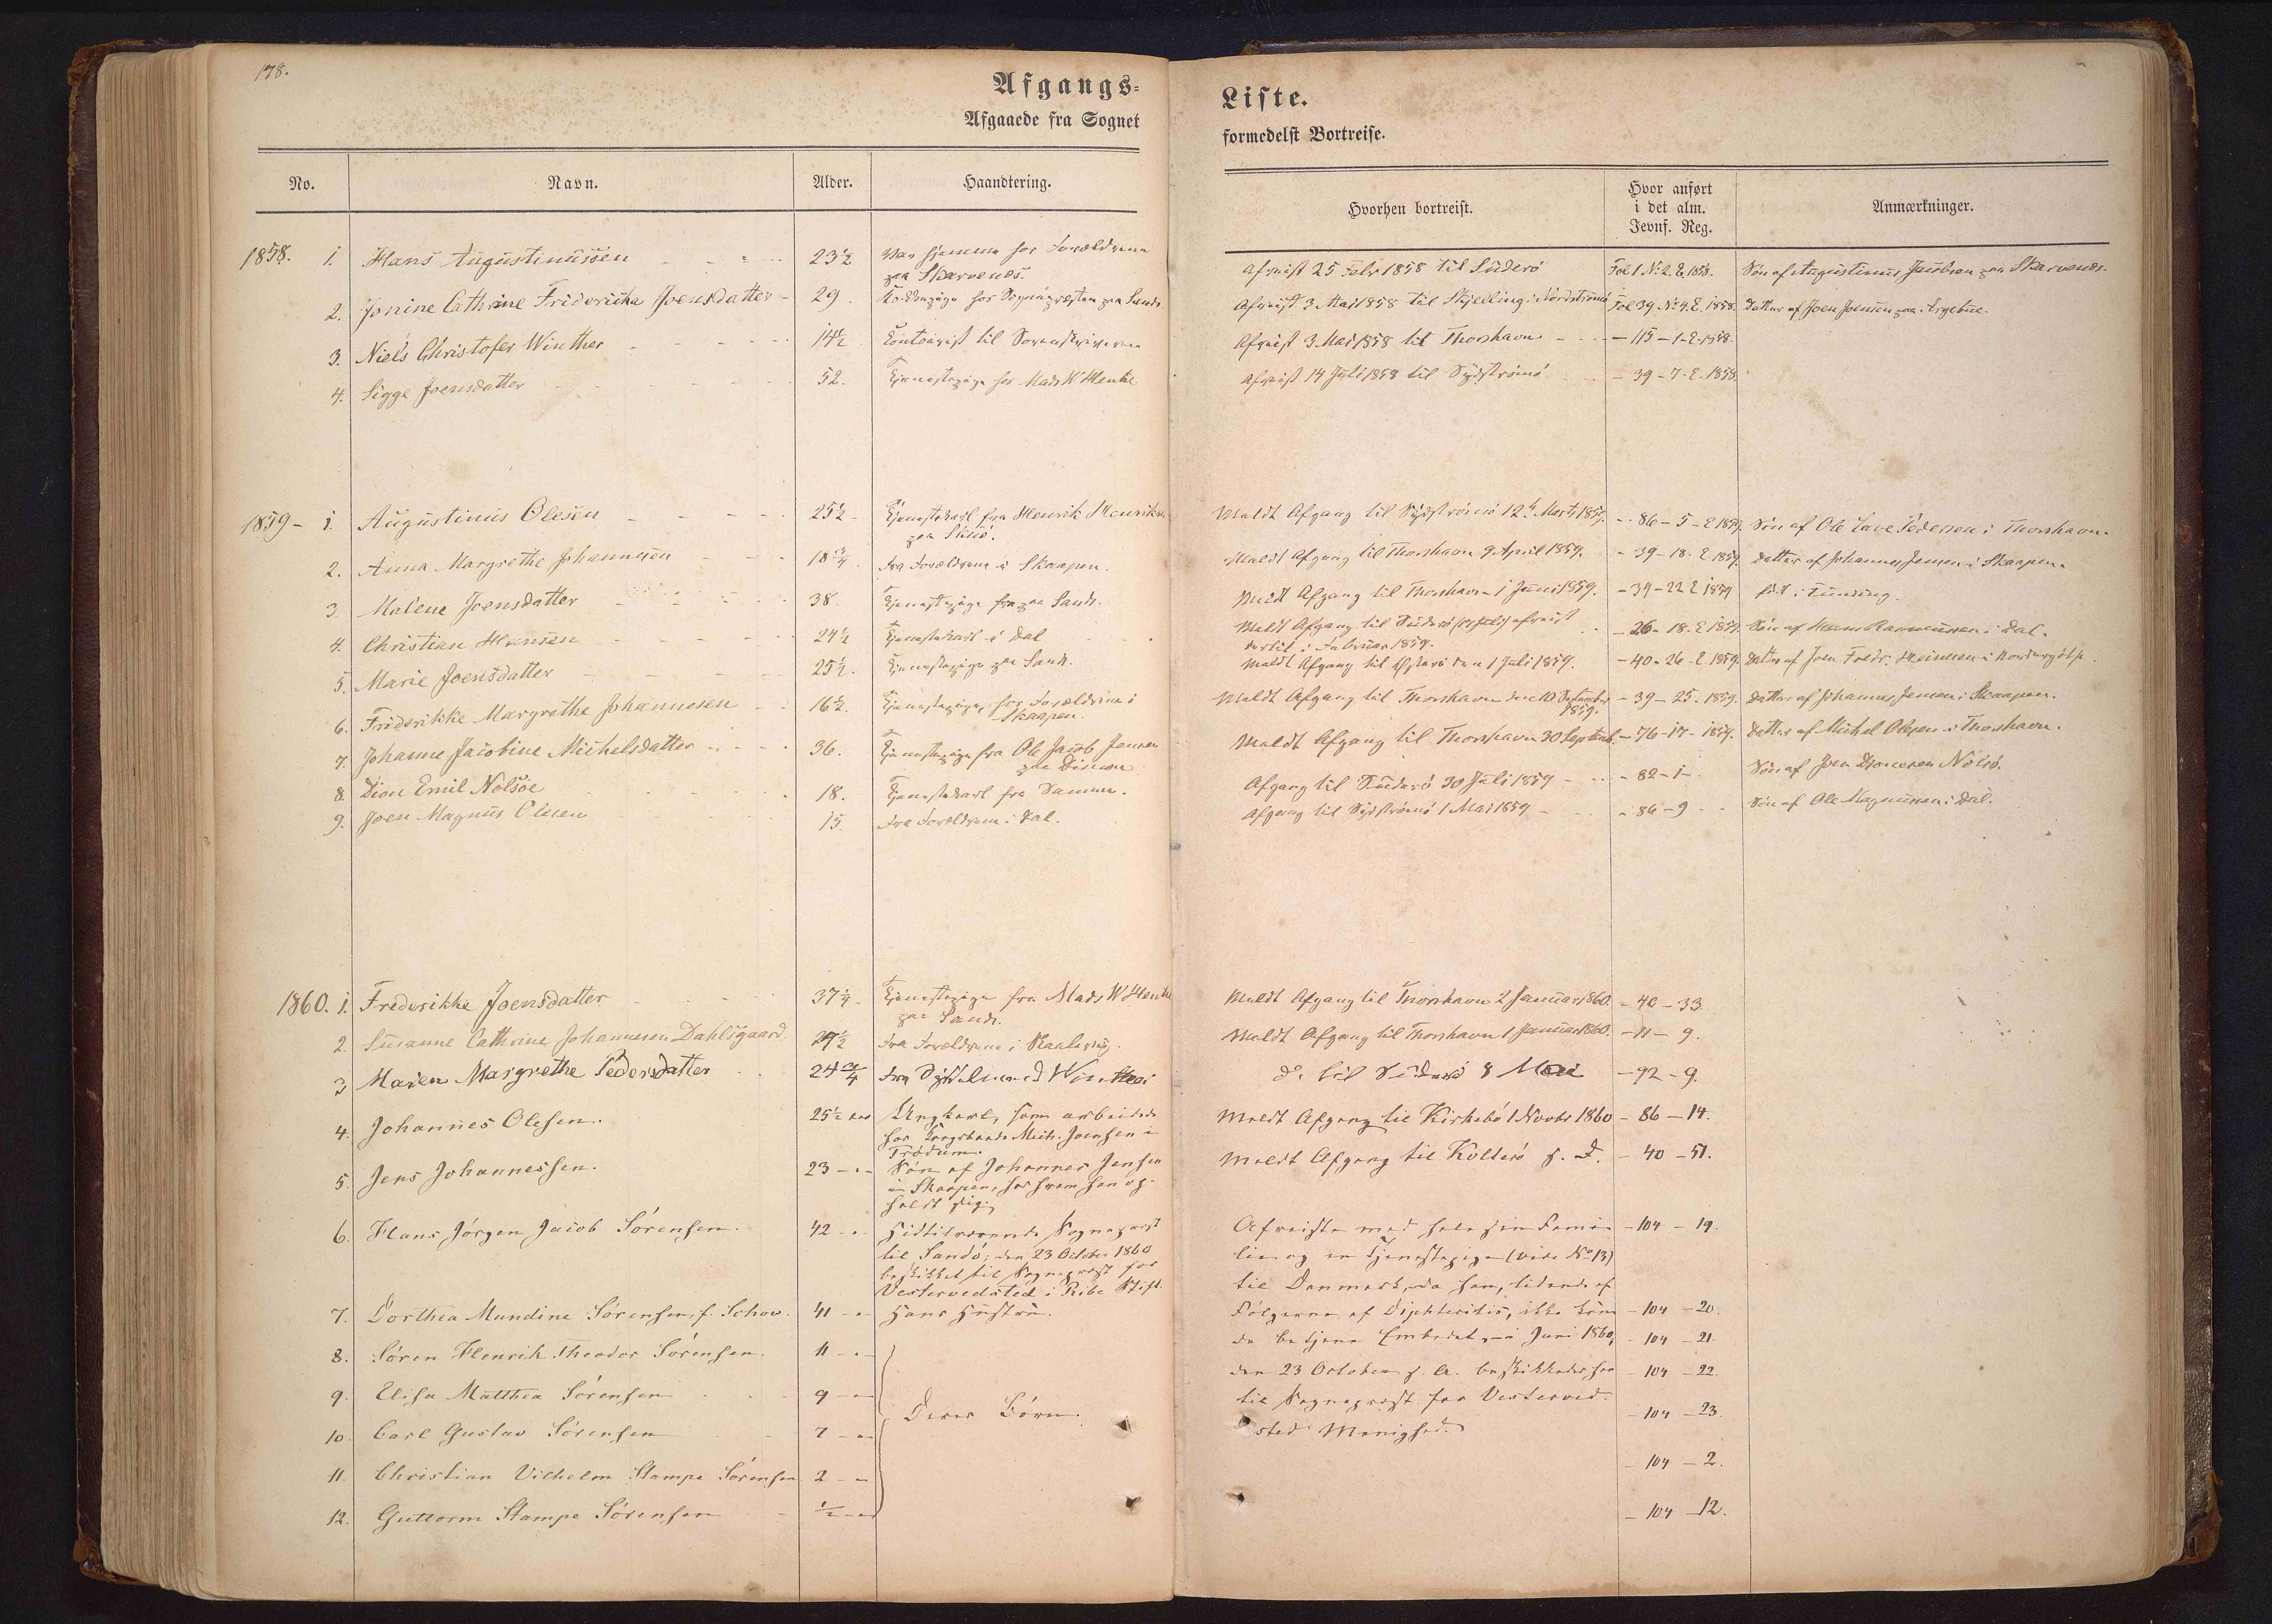 178.
Afgangs-
Afgaaede fra Sognet
No.
Navn.
Alder.
Haandtering.
1858. 1. Hans Augustinussen 23½ Var hjemme hos Forældrene
paa Skarvenes.
2. Jonine Cathrine Fridericha Joensdatter 29. hos Sognepræsten paa Sands.
3. Niels Christofer Winther 14½ Contoirist til Sorenskriveren
4. Sigge Joensdatter 52. Tjenestepige hos Mads W Henke
1859 - 1. Augustinus Olesen 25½ Tjenestekarl fra Henrik Henriks
paa
2. Anna Margrethe Johannesen 18¾ fra Forældrene i Skaapen.
3. Malene Joensdatter 38 Tjenestepige fra paa Sands.
4. Christian Hansen 24½ Tjenestekarl i Dal
5. Marie Joensdatter 25½. Tjenestepige paa Sands.
6. Friderikke Margrethe Johannesen 16½. Tjenestepige hos Forældrene i
Skaapen.
7. Johanne Jacobine Michelsdatter 36. Tjenestepige fra Ole Jacob Jensen
paa Dimon
8. Dion Emil Nolsöe 18. Tjenestekarl fra Samme.
9. Joen Magnus Olesen 15. fra Forældrene i Dal.
1860. 1. Frederikke Joensdatter 37¼ Tjenestepige fra Mads W Henke
paa Sands.
2. Susanne Cathrine Johannesen Dahlsgaard. 27½ fra Forældrene i Skaalevig.
3 Maren Margrethe Pedersdatter 24¾ fra Sysselmand Winther
4. Johannes Olesen. 25½ Aar Ungkarl, som arbeidede
hos Kongsbonde Mich. Joensen i
Trödum.
5. Jens Johannessen. 23 - " - Søn af Johannes Jensen
i Skaapen, hos hvem han op-
holdt sig.
6. Hans Jörgen Jacob Sörensen. 42 - " Hidtilværende Sognepræst
til Sandö; den 23 October 1860
beskikket til Sognepræst for
Vestervedsted i Ribe Stift.
7. Dorthea Mundine Sörensen, f. Schow. 41 - " Hans Hustru.
8. Sören Henrik Theodor Sörensen. 11 - " -
9. Elisa Matthea Sörensen 9 - "
Deres Börn.
10. Carl Gustav Sörensen 7 - "
11. Christian Vilhelm Stampe Sörensen 2 - "
12. Guttorm Stampe Sörensen ½ - "
Liste.
formedelst Bortreise.
Hvorhen bortreist.
Hvor anført
i det alm.
Jevnf. Reg.
Anmærkninger.
Afreist 25 Febr 1858 til Süderö Fol 1 No 2. E. 1858. Sön af Augustinus Jacobsen paa Skarvenes.
Afreist 3 Mai 1858 til Skjelling i Nordströmö Fol 39. No 4. E. 1858. Datter af Joen Joensen paa
Afreist 3 Mai 1858 til Thorshavn - 115 - 1 - E. 1858.
Afreist 14 Juli 1858 til Sydströmö - 39 - 7. E. 1858
Meldt Afgang til Sydströmö 12te Marts 1859. - 86 - 5 - E 1859. Sön af Ole Lave Pedersen i Thorshavn.
Meldt Afgang til Thorshavn 9 April 1859. - 39 - 18. E 1859. Datter af Johannes Jensen i Skaapen.
Meldt Afgang til Thorshavn 1 Juni 1859. - 39 - 22 E 1859 født i Funding.
Meldt Afgang til Süderö (15 Juli) afreist
dertil i Februar 1859. - 26 - 18. E 1859. Sön af Hans Rasmussen i Dal.
Meldt Afgang til Österö den 1 Juli 1859. - 40 - 26 - E. 1859. Datter af Joen Fredr. Heinesen i
Meldt Afgang til Thorshavn den 10 September
1859. - 39 - 25. 1859. Datter af Johannes Jensen i Skaapen.
Meldt Afgang til Thorshavn 30 Septemb. - 76 - 17 - 1859. Datter af Michel Olesen i Thorshavn.
Afgang til Süderö 30 Juli 1859 - 82 - 1 - Sön af Joen Dionesen Nölsö.
Afgang til Sydströmö 1 Mai 1859 - 86 - 9 - Sön af Ole Magnussen i Dal.
Meldt Afgang til Thorshavn 2 Januar 1860. - 40 - 33.
Meldt Afgang til Thorshavn 1 Januar 1860. - 11 - 9.
do til Süderö 8 Mai - 92 - 9.
Meldt Afgang til Kirkebö 1 Novbr 1860 - 86 - 14.
Meldt Afgang til Kolterö s. D. - 40 - 51.
Afreiste med hele sin Fami- - 104 - 19.
lie og en Tjenestepige (vide No 13)
til Danmark, da han, lidende af
Fölgerne af Diphteritis, ikke kun- - 104 - 20.
de betjene Embedet, - i Juni 1860, - 104 - 21.
den 23 October s. A. beskikkedes han - 104 - 22.
til Sognepræst for Vesterved-
sted Menighed. - 104 - 23.
- 104 - 2.
- 104 - 12.